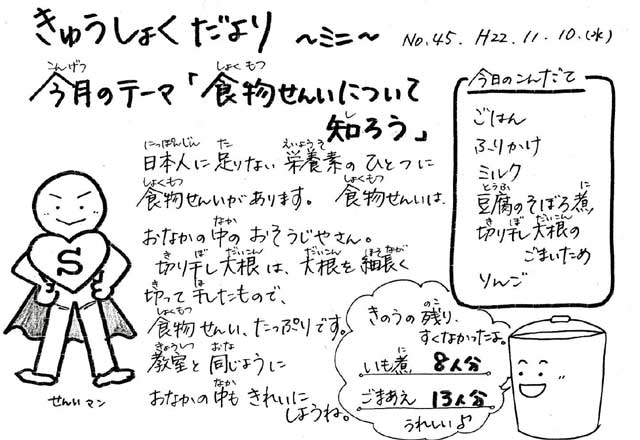 きゅうしょくだより ~ミニ~ No.45. H22.11.10.(水)
今月のテーマ「食物せんいについて
知ろう」
日本人に足りない栄養素のひとつに
食物せんいがあります。食物せんいは、
おなかの中のおそうじやさん。
切り干し大根は、大根を細長く
切って干したもので、
食物せんい、たっぷりです。
教室と同じように
おなかの中もきれいに
しようね。
せんいマン
今日のこんだて
ごはん
ふりかけ
ミルク
豆腐のそぼろ煮
切り干し大根の
ごまいため
りんご
きのうの残り、
すくなかったよ。
いも煮 8人分
ごまあえ 13人分
うれしい♪
S